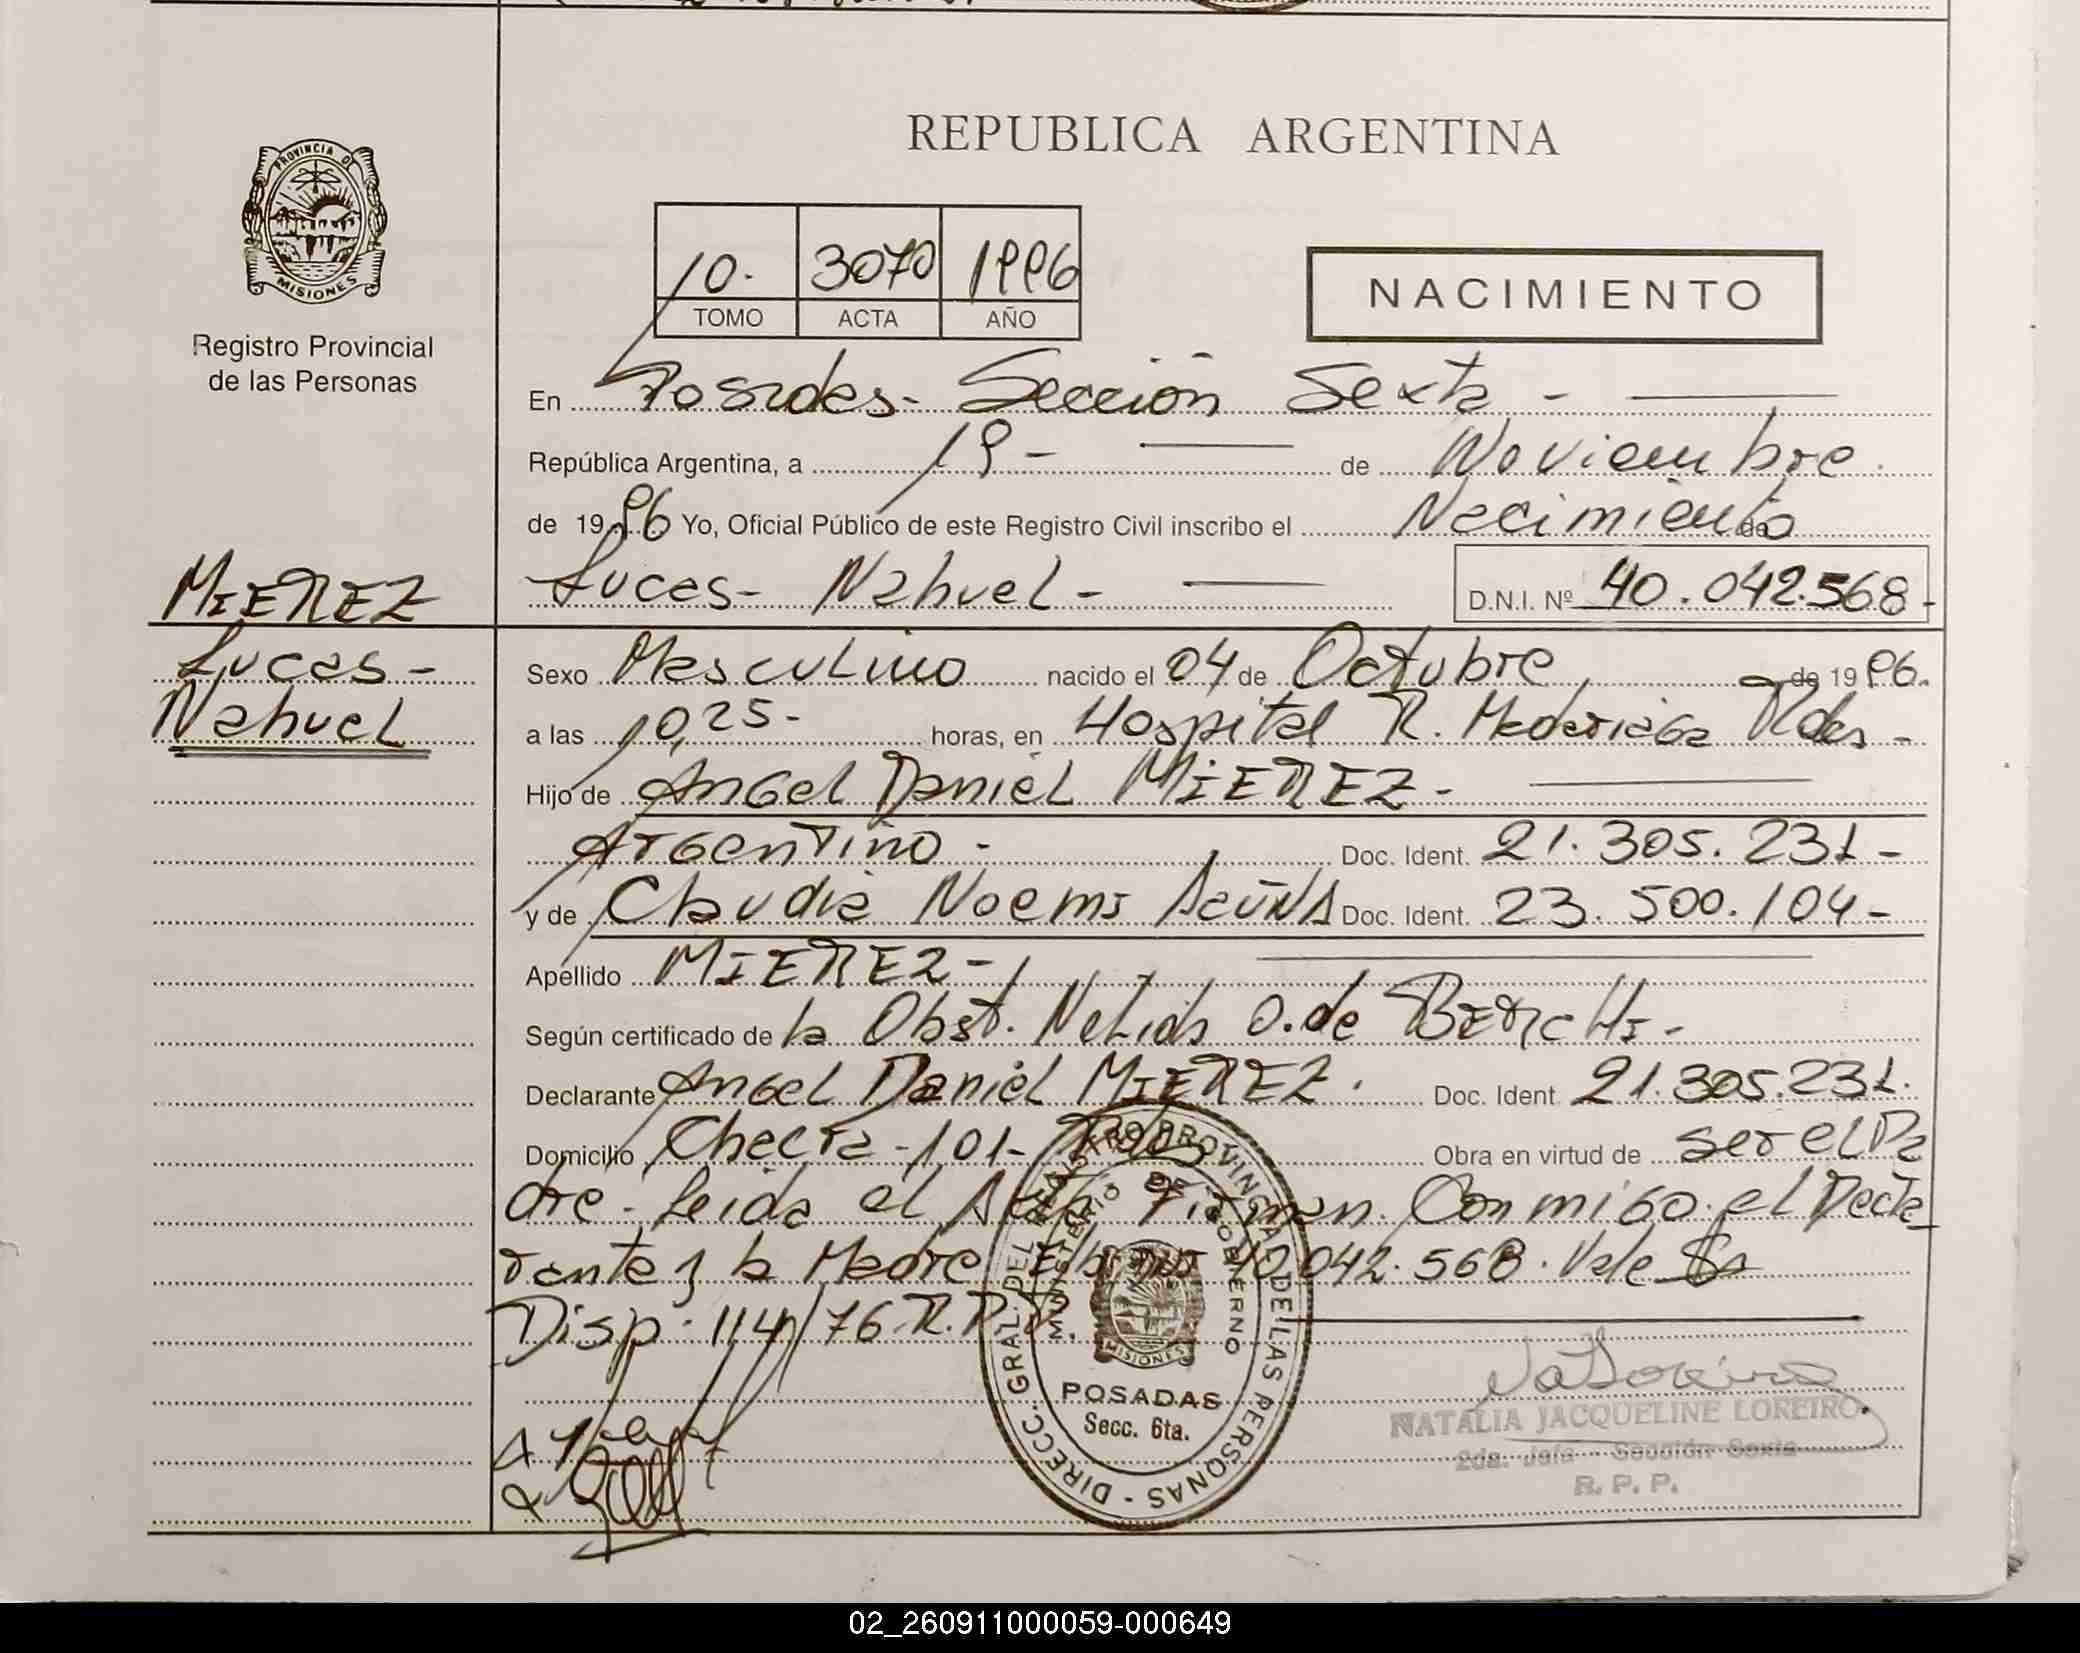 REPUBLICA ARGENTINA
PROVINCIA DE
MISIONES
Registro Provincial
de las Personas
10. 3070 1996
TOMO ACTA AÑO
NACIMIENTO
En Posadas - Sección Sexta -
República Argentina, a 19 - de Noviembre
de 1996 Yo, Oficial Público de este Registro Civil inscribo el Nacimiento de
MIEREZ
Lucas - Nahuel - D.N.I. Nº 40.042.568 -
Lucas -
Nahuel
Sexo Masculino nacido el 04 de Octubre de 1996.
a las 10,25 - horas, en Hospital R. Madariaga Pdas -
Hijo de Angel Daniel MIEREZ -
Argentino - Doc. Ident. 21.305.231 -
y de Claudia Noemi Acuña Doc. Ident. 23.500.104 -
Apellido MIEREZ -
Según certificado de la Obst. Nelida O. de
Declarante Angel Daniel MIEREZ. Doc. Ident 21.305.231.
Domicilio - 101 - Pdas Obra en virtud de ser el Pa
dre. Leida el Acta Firman Conmigo el Decla
rante y la Madre 40.042.568. Vale
Disp. 114/76 R.P.P.
DIRECC. GRAL. DEL REGISTRO PROVINCIAL DE LAS PERSONAS -
MINISTERIO DE GOBIERNO
MISIONES
POSADAS
Secc. 6ta.
NATALIA JACQUELINE LOREIRO
2da. Jefa - Sección Sexta
R. P. P.
02_260911000059-000649